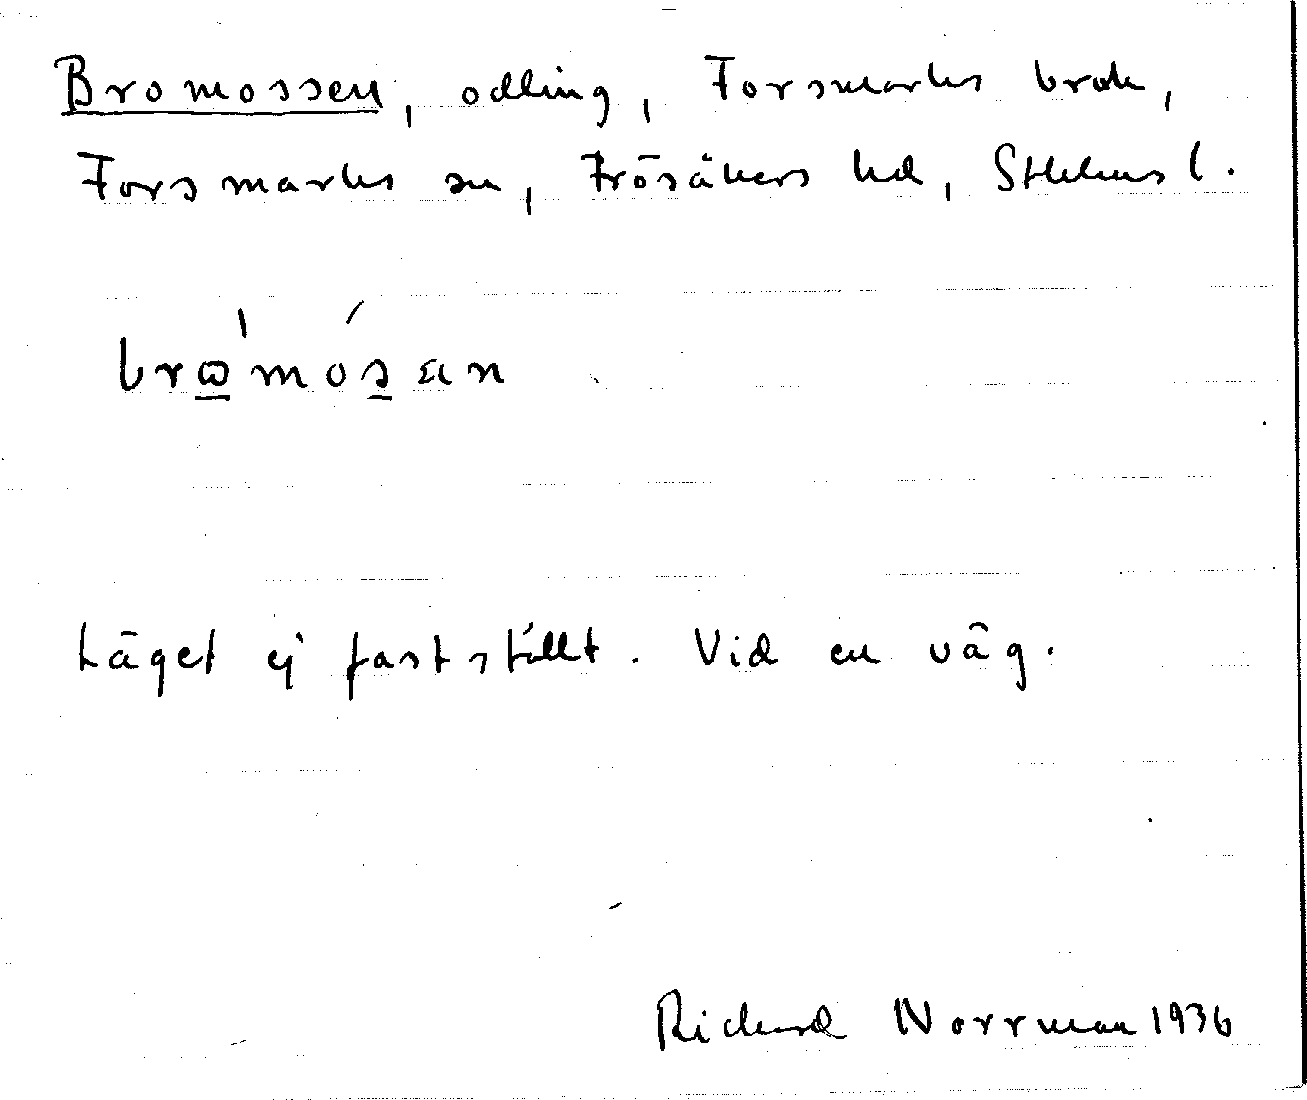 Bromossen, odling, Forsmarks bruk,
Forsmarks sn, Frösåkers hd, Sthlms l.
brὼ̠mós̠an
Läget ej fastställt. Vid en väg.
Richard Norrman 1936